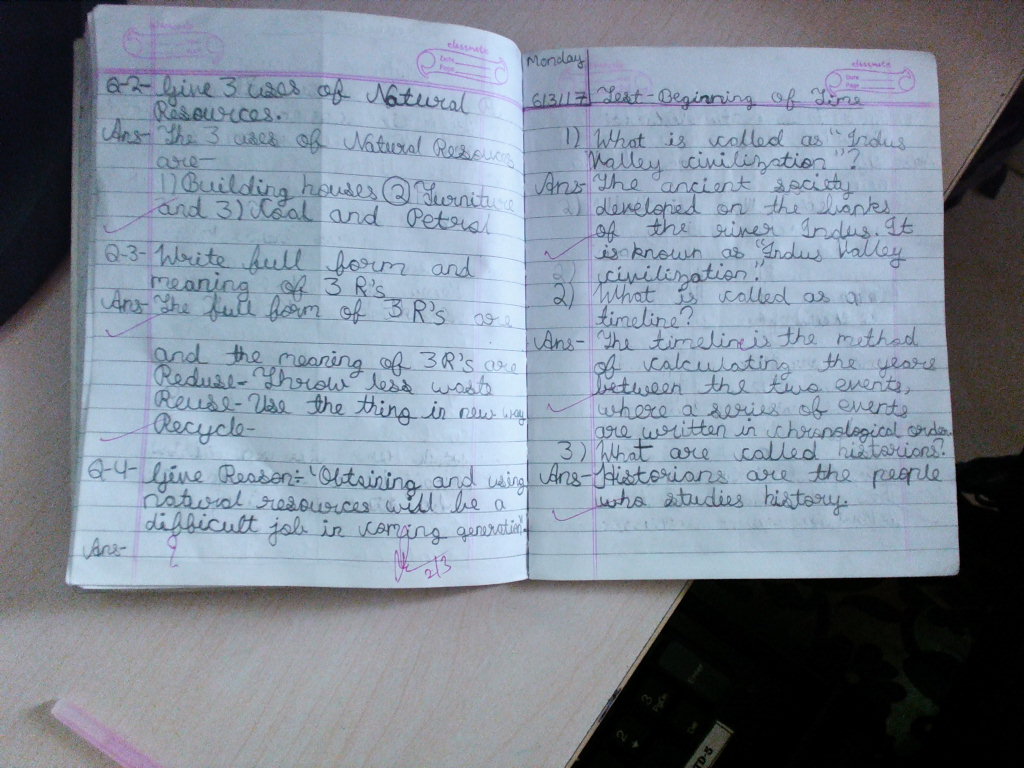 classmate
Date
Page
Q-2- Give 3 uses of Natural
Resources.
Ans- The 3 uses of Natural Resouces
are-
1) Building houses 2 Furniture
and 3) Coal and Petrol
Q-3- Write full form and
meaning of 3 R's
Ans- The full form of 3 R's are
and the meaning of 3R's are
Reduse- Throw less waste
Reuse- Use the thing in new way
Recycle-
Q-4- Give Reason:- "Obtaining and using
natural resources will be a
difficult job in coming generation"
Ans- ?
2/3
classmate
Date
Page
Monday
6/3/17 Test- Beginning of Time
1) What is called as "Indus
Valley civilization"?
Ans- The ancient society
developed on the banks
of the river Indus. It
is known as "Indus Valley
civilization".
2) What is called as a
timeline?
Ans- The timeline is the method
of calculating the years
between the two events,
where a series of events
are written in chronological order.
3) What are called historians?
Ans- Historians are the people
who studies history.
3
2
TD-5